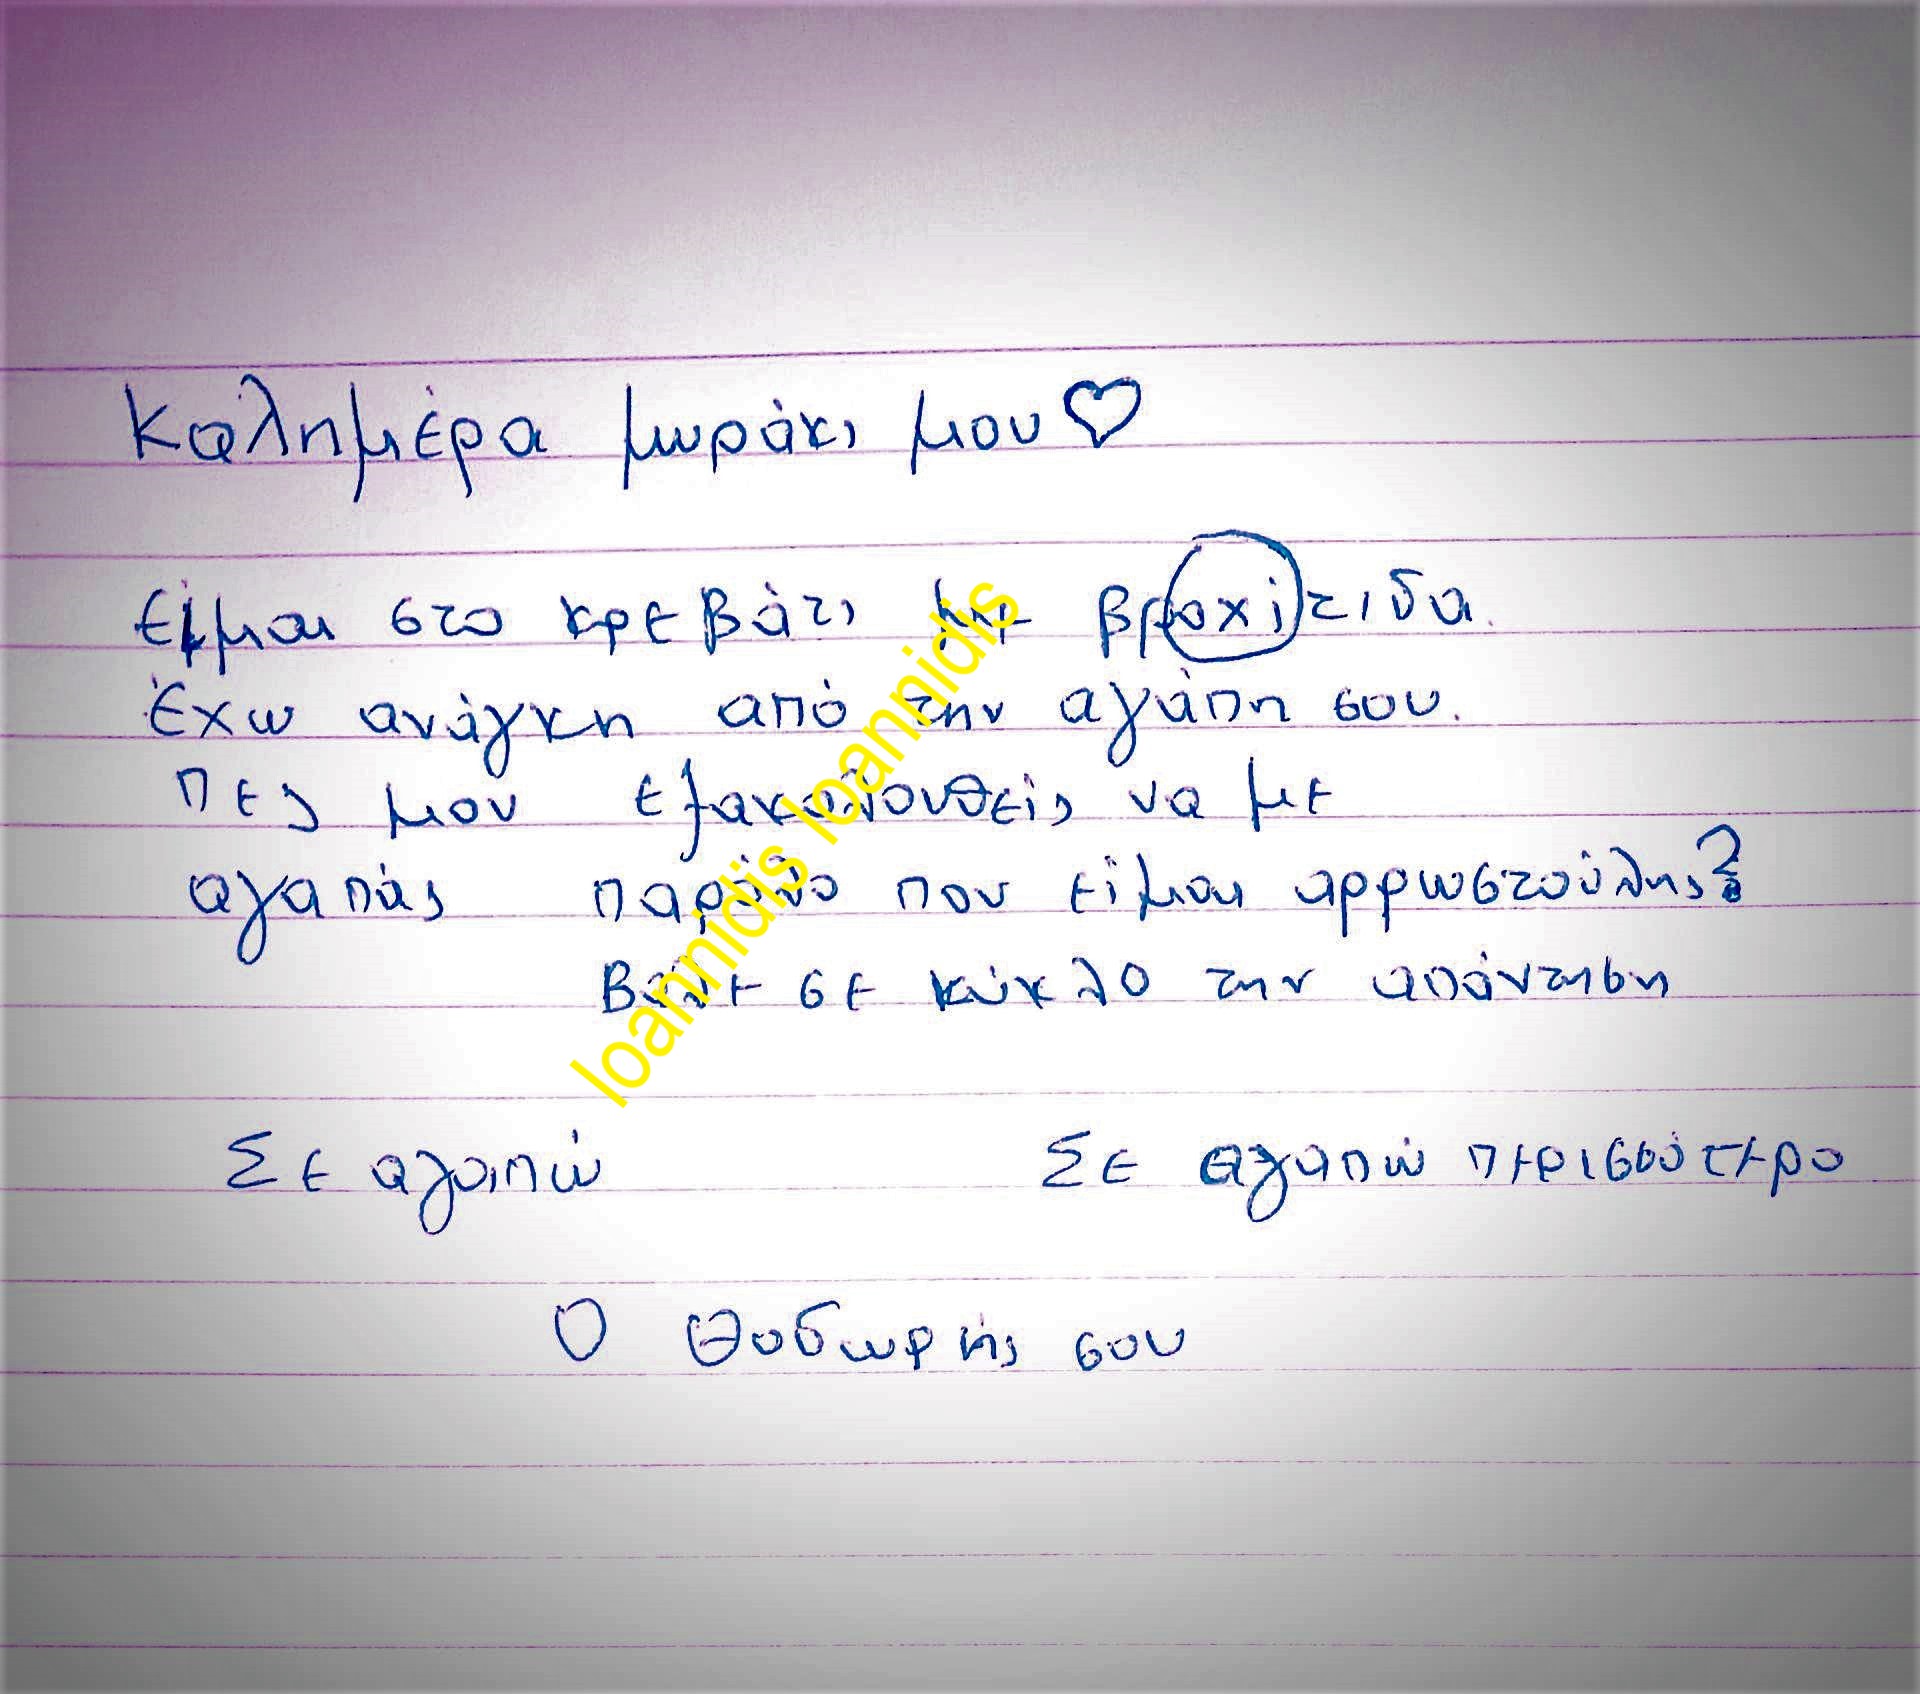 Καλημέρα μωράκι μου♡
Είμαι στο κρεβάτι με βροχίτιδα.
Έχω ανάγκη από την αγάπη σου.
Πες μου εξακολουθείς να με
αγαπάς παρόλο που είμαι αρρωστούλης?
Βάλε σε κύκλο την απάντηση
Σε αγαπώ Σε αγαπώ περισσότερο
Ο Θοδωρής σου
Ioannidis Ioannidis